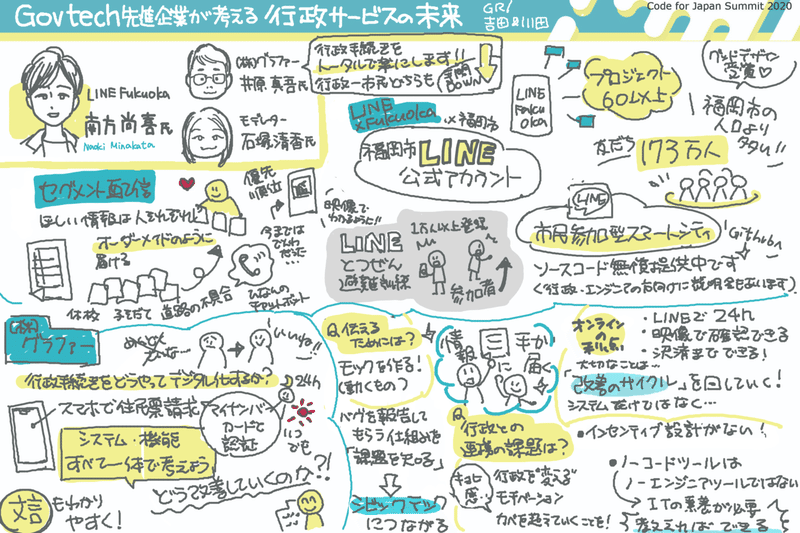 Code for Japan Summit 2020
Govtech先進企業が考える行政サービスの未来
GR/
吉田&川田
LINE Fukuoka
南方尚喜氏
Naoki Minakata
(株)グラファー
井原真吾氏
モデレーター
石塚清香氏
行政手続きを
トータルで楽にします!!
行政ー市民どちらも
手間
DOWN
LINE
Fukuoka
×福岡市
福岡市LINE
公式アカウント
LINE
Fuku
oka
プロジェクト
60以上
グッドデザイン
受賞
福岡市の
人口より
多い!!
友だち
173万人
セグメント配信
ほしい情報は人それぞれ
オーダーメイドのように
届ける
休校
子そだて
道路の不具合
優先
順位
今までは
でんわ
だった…
ひなんの
チャットボット
映像で
わかるように!!
LINE
とつぜん
避難訓練
1万人以上登録
参加者
LINE
市民参加型スマートシティ
Githubへ
ソースコード無償お提供中です
(行政・エンジニアのお向けに説明会をおいます)
(株)
グラファー
めんどく
さいな…
いいね!!
行政手続きをどうやってデジタル化するか?
スマホで住民票請求
マイナンバー
カードで
認証
24h
いつ
でも
システム・機能
すべて一体で考えよう
どう改善していくのか?!
文言
もわかり
やすく!
Q.伝える
ためには?
モックを作る!
(動くもの)
バグを報告して
もらう仕組みを
「課題を知る」
シビックテック
につながる
情報
が
手に
届く
Q
行政との
連携の課題は?
キョヒ
感
行政を"変える"
モチベーション
カベを越えていくことを!
オンライン
の利点
・LINEで24h
・映像で確認できる
・決済までできる!
大切なことは…
「改善のサイクル」を回していく!
システムだけではなく…
・インセンティブ設計がない!
・ノーコードツールは
ノーエンジニアツールではない
ITの素養が必要
教えればできる